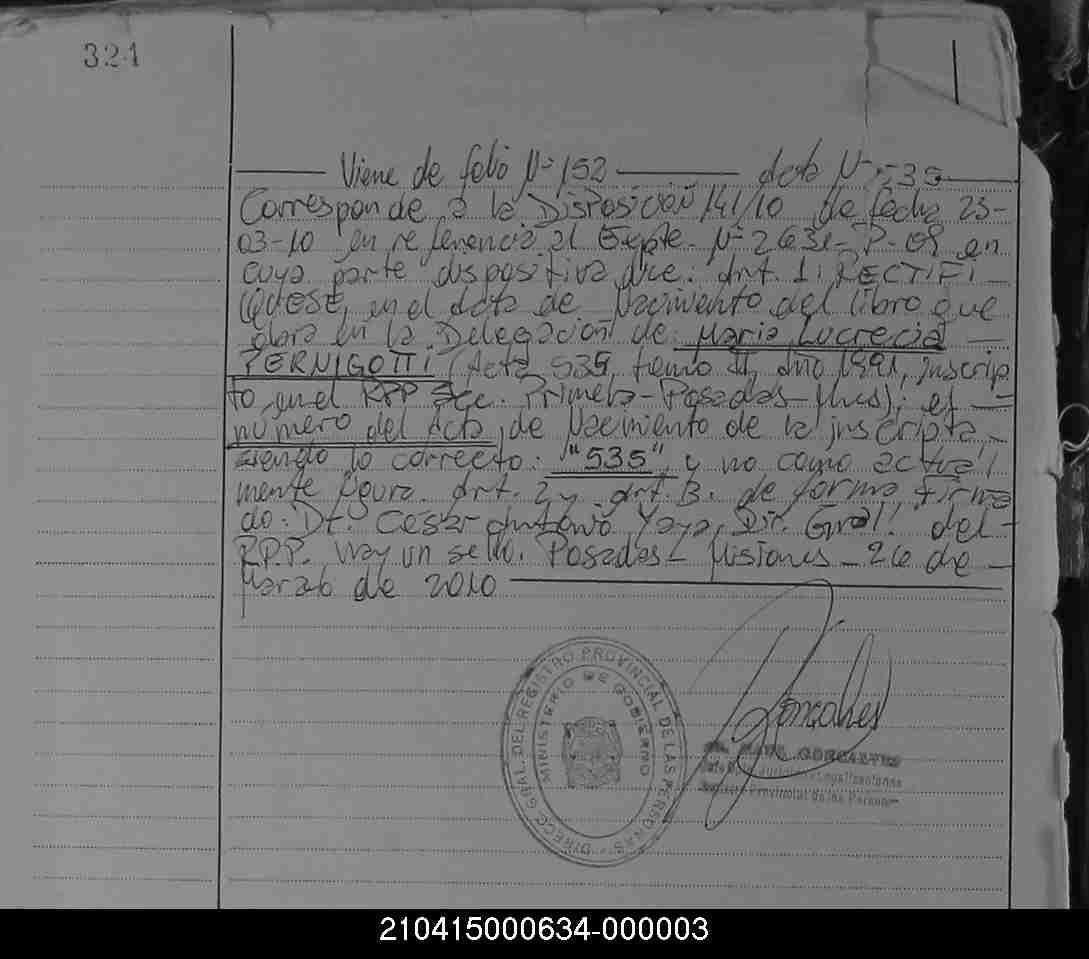 321
Viene de folio Nº 152 acta Nº 535
Corresponde a la Disposición 141/10 de fecha 23-
03-10 en referencia al Expte. Nº 2631-P-09 en
cuya parte dispositiva dice: Art. 1: RECTIFI
QUESE, en el acta de Nacimiento del libro que
obra en la Delegación de: Maria Lucrecia
PERNIGOTTI (Acta 535, tomo II, año 1991, inscrip
to en el RPP Scc. Primera - Posadas - Mnes); el
numero del Acta, de Nacimiento de la inscripta
siendo lo correcto: "535", y no como actual
mente figura. Art. 2 y Art. 3. de forma firma
do: Dr. Cesar Antonio Yaya, Dir. Gral. del
R.P.P. Hay un sello. Posadas - Misiones - 26 de
Marzo de 2010
DIRECC. GRAL. DEL REGISTRO PROVINCIAL DE LAS PERSONAS
MINISTERIO DE GOBIERNO
Goncalves
RAUL GONCALVES
Legalizaciones
Registro Provincial de las Personas
210415000634-000003